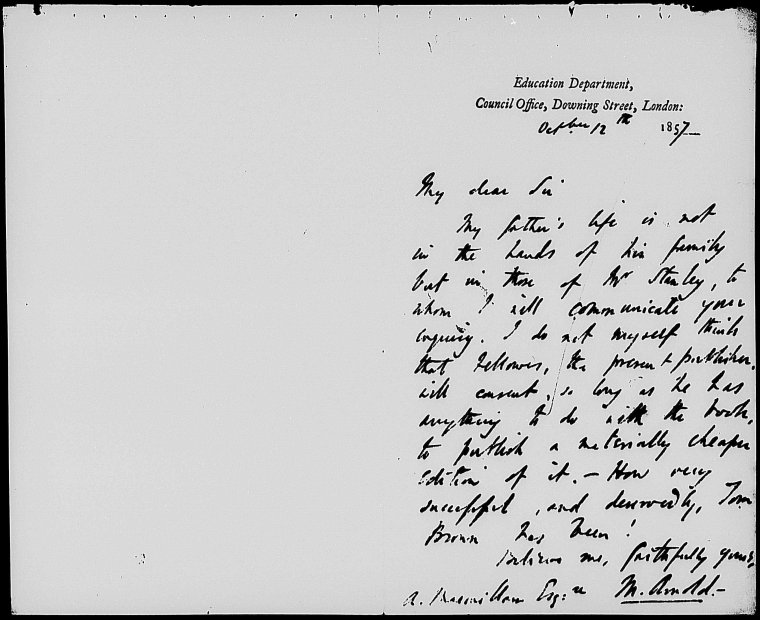 Education Department,
Council Office, Downing Street, London:
October 12th 1857
My dear Sir
My father's life is not
in the hands of his family
but in those of Mr Stanley, to
whom I will communicate your
enquiry. I do not myself think
that Fellowes, the present publisher,
will consent, so long as he has
anything to do with the book,
to publish a materially cheaper
edition of it. — How very
successful, and deservedly, Tom
Brown has been!
Believe me, faithfully yours,
M. Arnold. —
A. Macmillan Esq:re